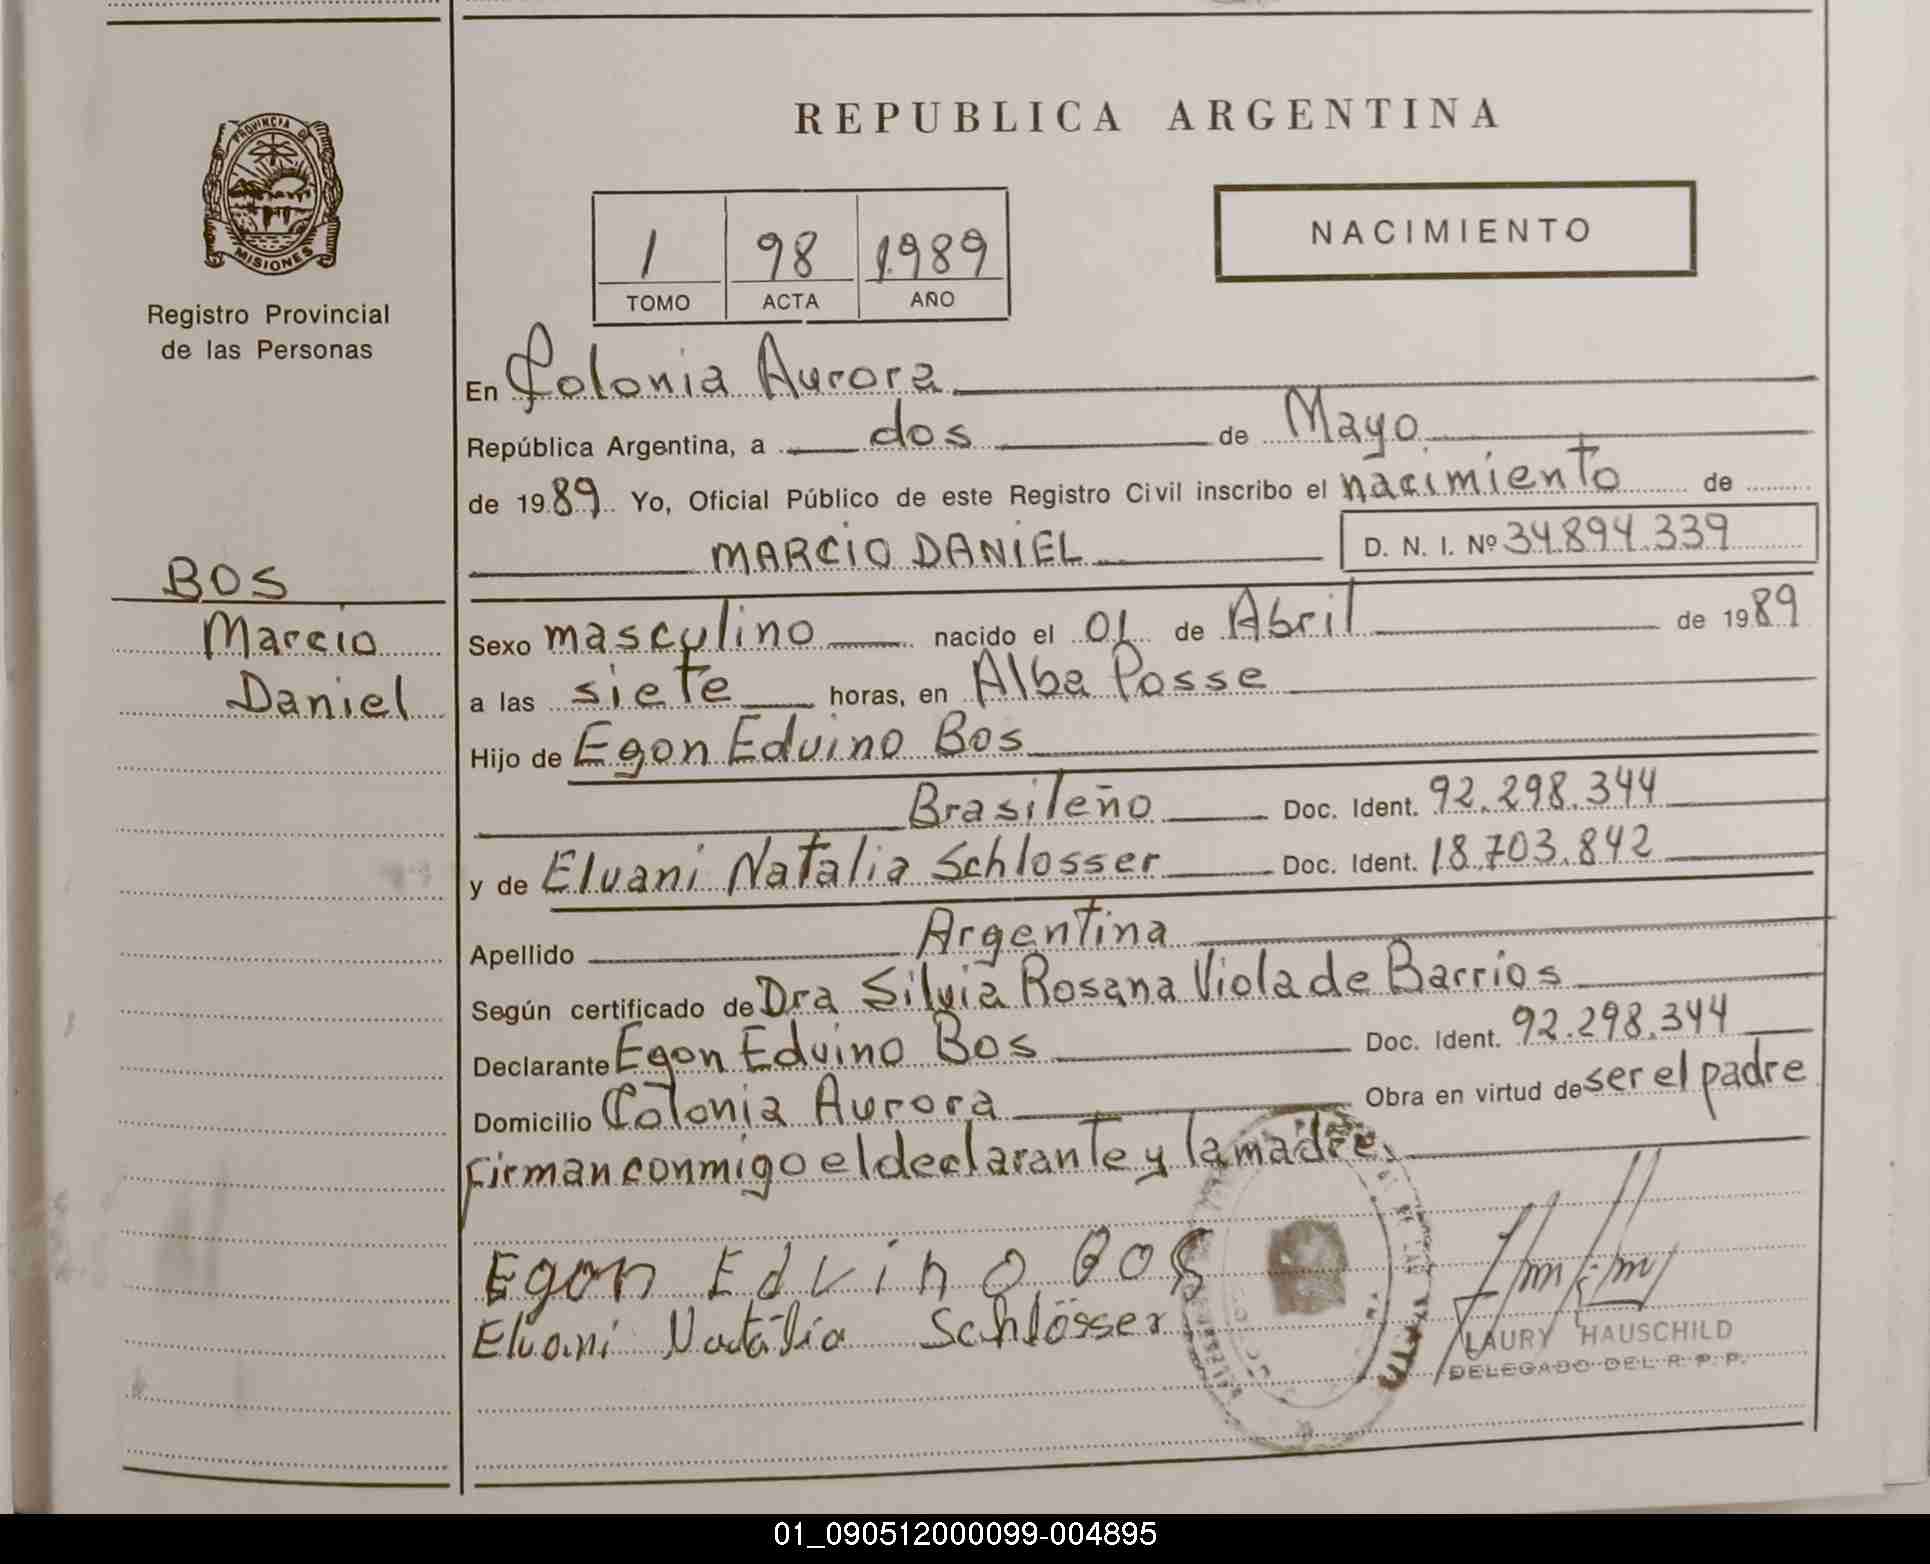 REPUBLICA ARGENTINA
PROVINCIA DE
MISIONES
Registro Provincial
de las Personas
NACIMIENTO
1 98 1989
TOMO ACTA AÑO
En Colonia Aurora
República Argentina, a dos de Mayo
de 1989 Yo, Oficial Público de este Registro Civil inscribo el nacimiento de
MARCIO DANIEL D. N. I. Nº 34.894.339
BOS
Marcio
Daniel
Sexo masculino nacido el 01 de Abril de 1989
a las siete horas, en Alba Posse
Hijo de Egon Eduino Bos
Brasileño Doc. Ident. 92.298.344
y de Eluani Natalia Schlosser Doc. Ident. 18.703.842
Apellido Argentina
Según certificado de Dra Silvia Rosana Viola de Barrios
Declarante Egon Eduino Bos Doc. Ident. 92.298.344
Domicilio Colonia Aurora Obra en virtud de ser el padre
Firman conmigo el declarante y la madre.
Egon Edvino Bos
Eluani Natália Schlösser
LAURY HAUSCHILD
DELEGADO DEL R. P. P.
01_090512000099-004895